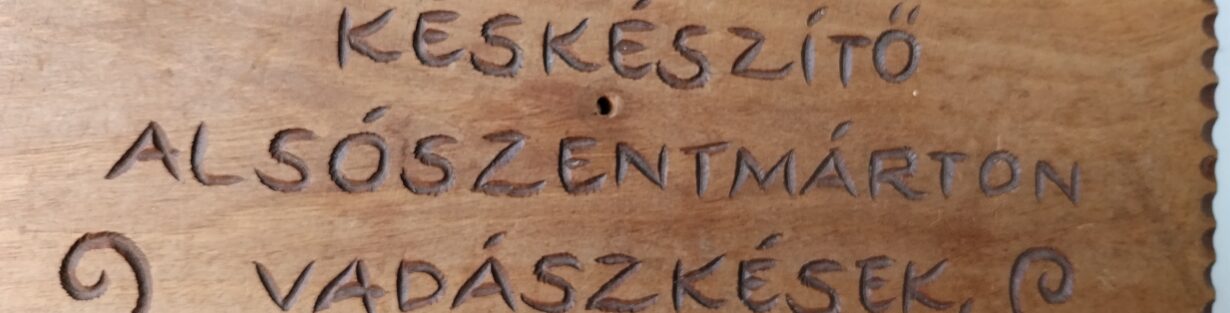 KÉSKÉSZÍTŐ
ALSÓSZENTMÁRTON
VADÁSZKÉSEK.